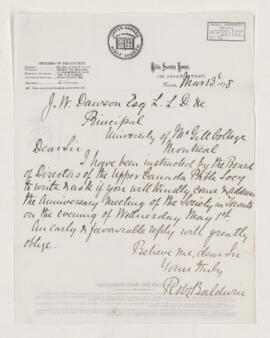 UPPER CANADA
BIBLE SOCIETY
Bible Society House,
Toronto, Mar 13th 1878
J. W. Dawson Esq L.L.D &c
Principal
University of McGill College
Montreal
Dear Sir
I have been instructed by the Board
of Directors of the Upper Canada Bible Socy
to write & ask if you will kindly come & address
the Anniversary Meeting of the Society in Toronto
on the evening of Wednesday May 1st.
An early & favorable reply will greatly
oblige.
Believe me, dear Sir
Yours truly
Robt Baldwin